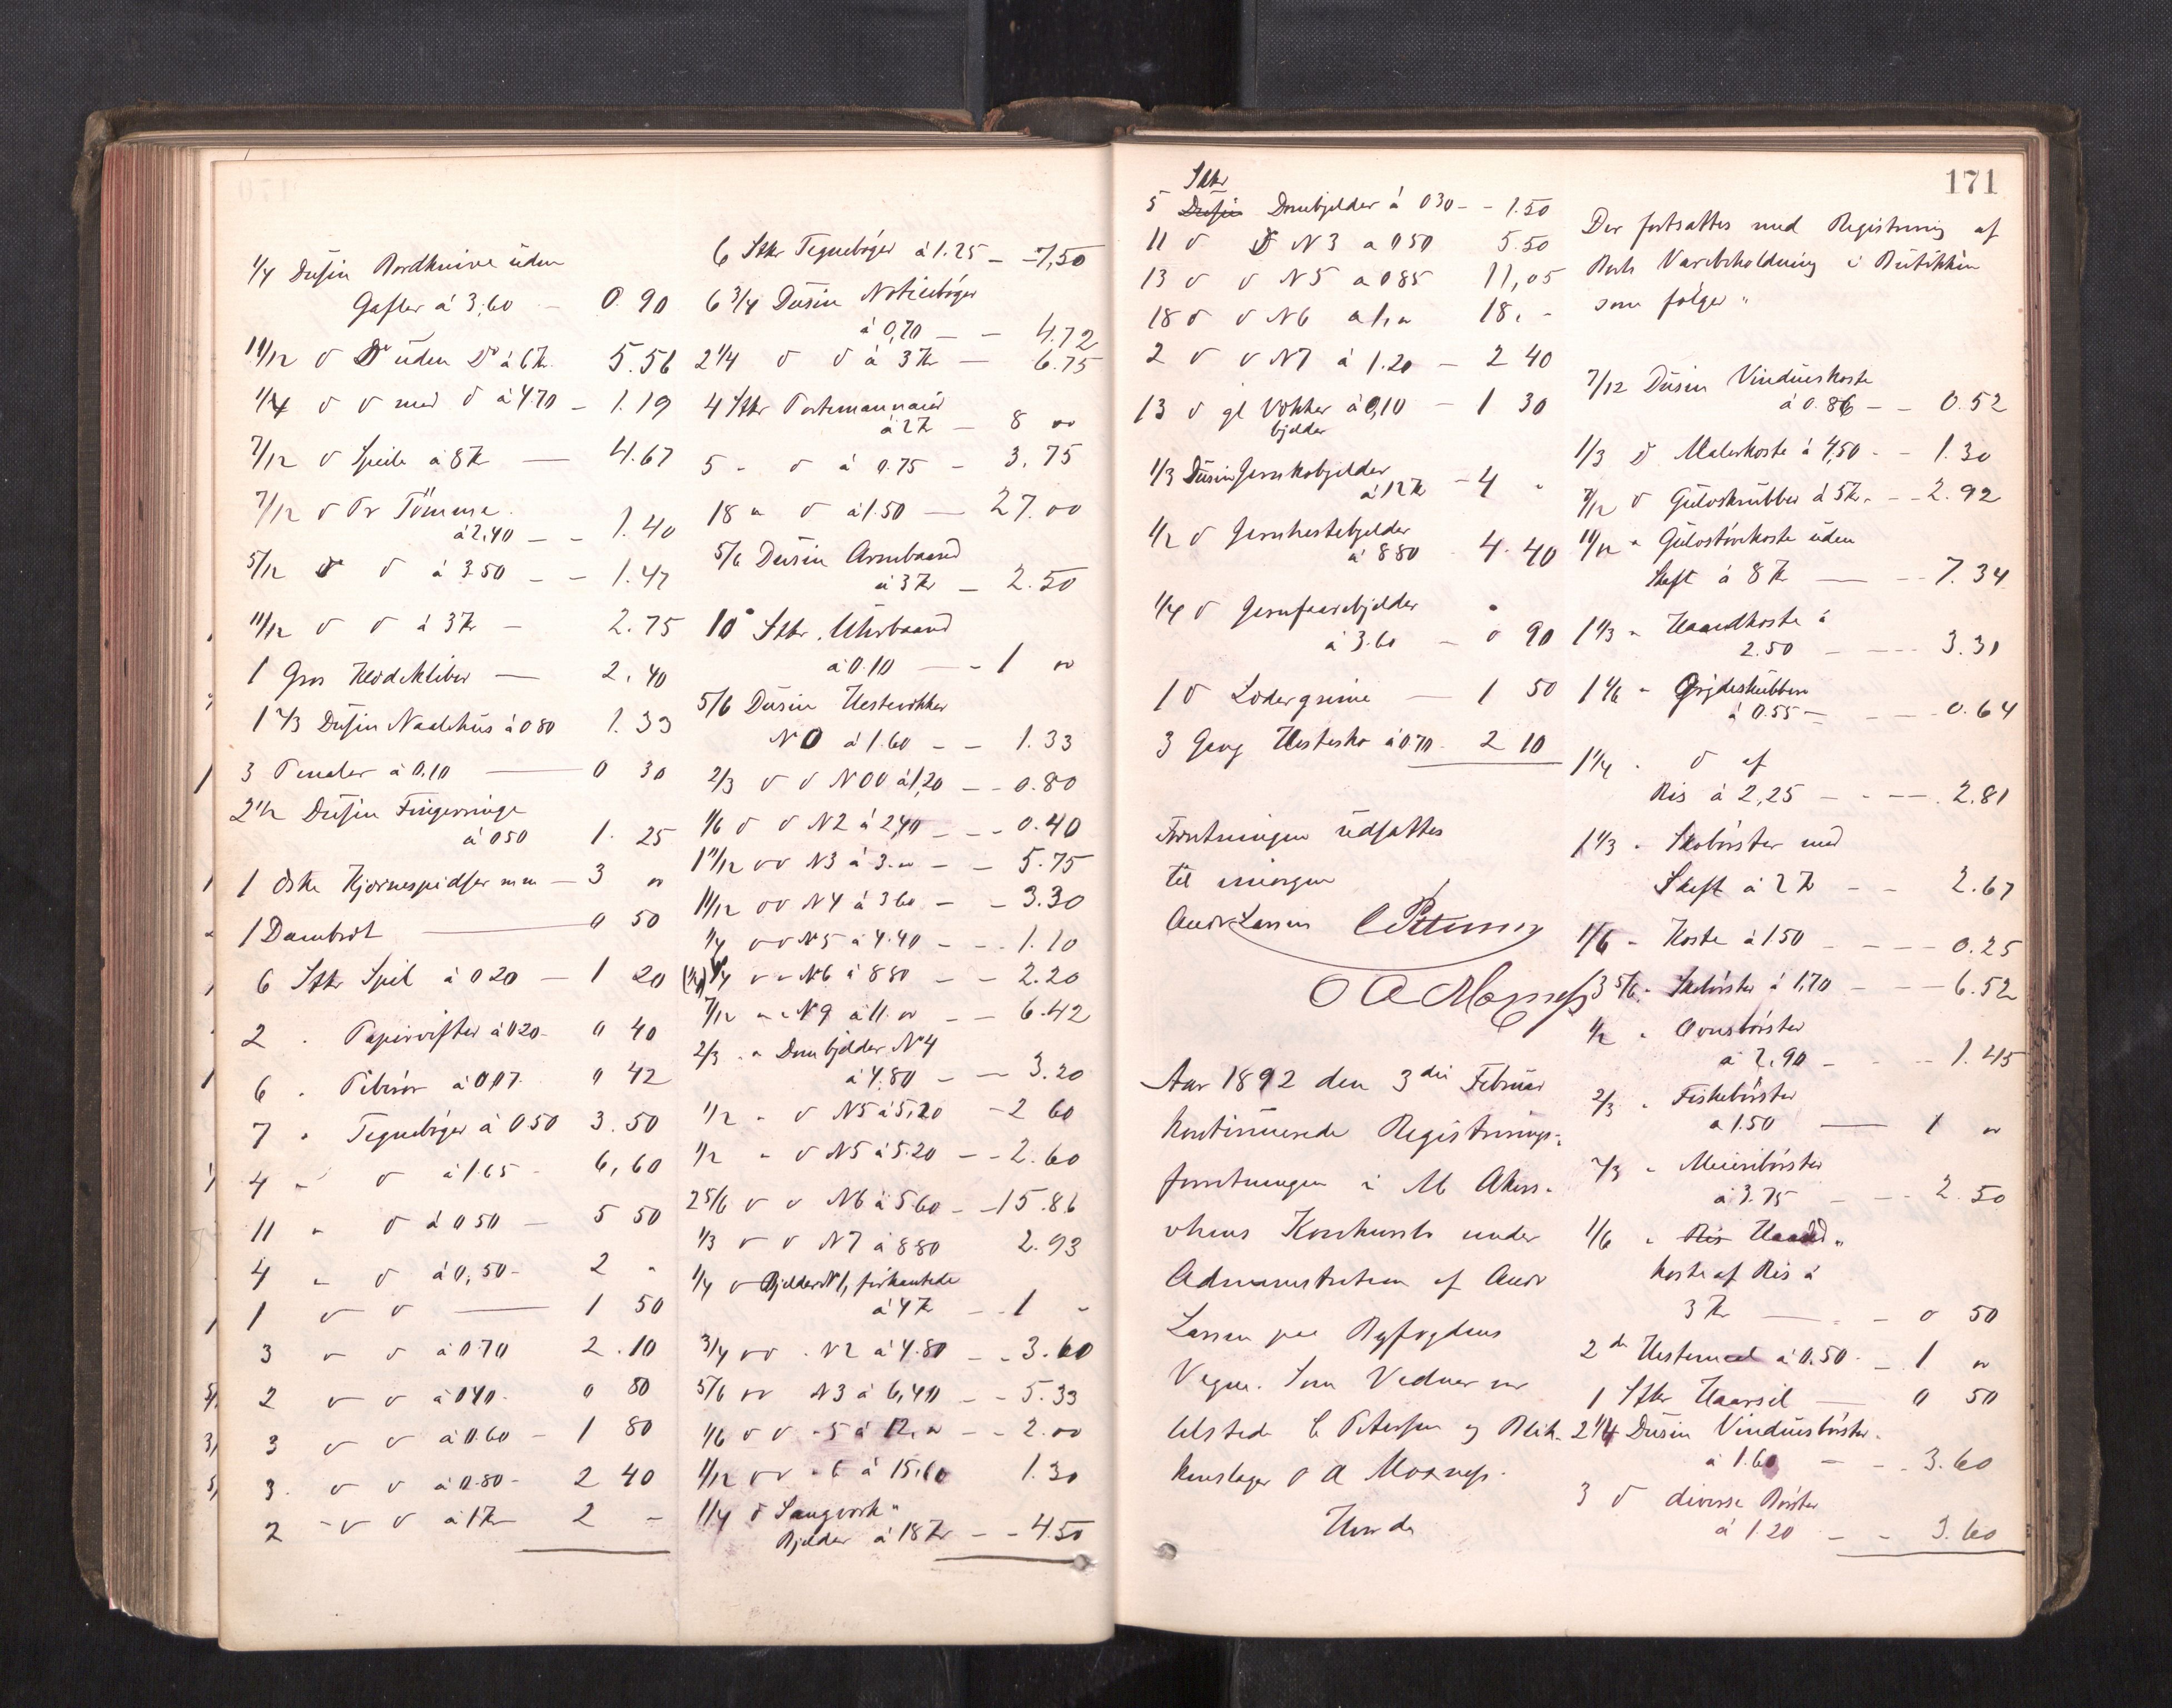 1/4 Dusin Bordknive uden
Gafler á 3,60 — 0.90
11/12 do Do uden Do á 6 Kr. 5.56
1/4 do do med do á 4.70 – 1.19
7/12 do Speile á 8 Kr — 4.67
7/12 do Pr Tömme
á 2,40 – – 1.40
5/12 do do á 3.50 – – 1.47
11/12 do do á 3 Kr – 2.75
1 Gros — 2.40
1 2/3 Dusin Naalehus á 0.80 1.33
3 Penaler á 0.10 — 0 30
2 1/2 Dusin Fingerringe
á 0 50 1. 25
1 Öske m m — 3 oo
1 Dambret — 0 50
6 Stkr Spil á 0 20 — 1 20
2 " Papirvifter á 0.20 - 0 40
6 " Piberör á 0,07 0 42
7 " Tegnebøger á 0.50 3.50
4 " do á 1.65 - 6,60
11 " do á 0 50 — 5 50
4 " do á 0,50 - 2 "
1 do do — 1 50
3 do do á 0.70 2.10
2 do do á 0 40 - 0 80
3 do do á 0.60 – 1 80
3 do do á 0.80 - 2 40
2 do do á 1 Kr 2 –
6 Stkr Tegnebøger á 1.25 – – 7,50
6 3/4 Dusin Notitsbøger
á 0,70 – – 4.72
2 1/4 do do á 3 Kr — 6.75
4 Stkr Portemonnaier
á 2 Kr – 8 oo
5 - do á 0.75 – 3.75
18 " do á 1.50 — 27.00
5/6 Dusin Armbaand
á 3 Kr – 2.50
10 Stkr. Uhrbaand
á 0.10 — – 1 oo
5/6 Dusin
N 0 á 1.60 – – 1.33
2/3 do do N 00 á 1,20 – – 0.80
1/6 do do N 2 á 2,40 – – 0.40
1 11/12 do do N3 á 3.oo – – 5.75
11/12 do do N 4 á 3 60 – – 3.30
1/4 do do N 5 á 4.40 – – 1.10
1/4 do " N6 á 8 80 – – 2.20
7/12 " " N 9 á 11.oo – – 6.42
2/3 " " Dombjelder N4
á 4.80 – – 3.20
1/2 " do N5 á 5,20 – 2 60
1/2 " do N5 á 5.20 – – 2.60
2 5/6 do do N6 á 5.60 – – 15.86
1/3 do do N 7 á 8 80 2.93
1/4 do Bjelder N 1, firkantede
á 4 Kr – – 1 -
3/4 do do " N 2 á 4.80 – – 3.60
5/6 do do N3 á 6,40 – – 5.33
1/6 do do - 5 á 12,oo – – 2.00
1/12 do do - 6 á 15,60 1.30
1/4 do
Bjelder á 18 Kr – – 4.50
171
Stkr
5 Dusin Dombjelder á 0 30 – – 1.50
11 do do N 3 a 0 50 5.50
13 do do N 5 a 0 85 11,05
18 do do N6 a 1,oo 18, -
2 do do N 7 á 1.20 – 2 40
13 do gl á 0,10 – 1 30
bjelder
1/3 Dusin Jernkobjelder
á 12 Kr – 4 "
1/2 do Jernhestebjelder
á 8 80 4.40
1/4 do Jernfaarebjelder
á 3.60 – 0 90
1 do — 1 50
3 Gang Hestesko á 0.70 - 2 10
Forretningen udsattes
til imorgen
Andr Larsen C Petersen
O A Moxness
Aar 1892 den 3die Februar
kontinuerede Registrerings-
forretningen i M. Akers-
Konkursbo under
Administration af Andr
Larsen paa Byfogdens
Vegne. Som Vidner var
tilstede C Petersen og Blik-
kenslager O A Moxness.
Der fortsattes med Registrering af
Boets Varebeholdning i Butikken
som følger "
7/12 Dusin Vindueskoste
á 0.86 – – 0.52
1/3 do Malerkoste á 4,50 – – 1.30
7/12 do Gulvskrubber á 5 Kr. – – 2.92
11/12 " uden
Skaft á 8 Kr — – 7.34
1 1/3 " Haandkoste á
2.50 – – – 3.31
1 1/6 " Grydeskubbere
á 0.55 – – – 0.64
1 1/4 " do af
Ris á 2,25 – – – 2.81
1 1/3 " Skobørster med
Skaft á 2 Kr – – 2.67
1/6 " Koste á 1 50 – – – 0.25
3 5/6 " Skobørster á 1,70 – – – 6.52
1/2 " Ovnsbørster
á 2,90 – – – 1.45
2/3 " Fiskebørster
a 1.50 — 1 oo
2/3 " Meieribørster
á 3.75 – – – 2.50
1/6 " Ris Haand-
koste af Ris á
3 Kr — – 0 50
2 do á 0.50 – 1 oo
1 Stkr Haarsil — 0 50
2 1/4 Dusin Vinduesbørster
á 1.60 – – – 3.60
3 do diverse Børster
á 1 20 – – 3.60